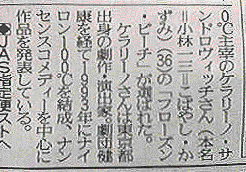 0℃主宰のケラリーノ・サ
ンドロヴィッチさん(本名
=小林一三=こばやし・か
ずみ)(36の「フローズン
・ビーチ」が選ばれた。
ケラリーノさんは東京都
出身の劇作・演出家。劇団健
康を経て1993年にナイ
ロン100℃を結成、ナン
センスコメディーを中心に
作品を発表している。